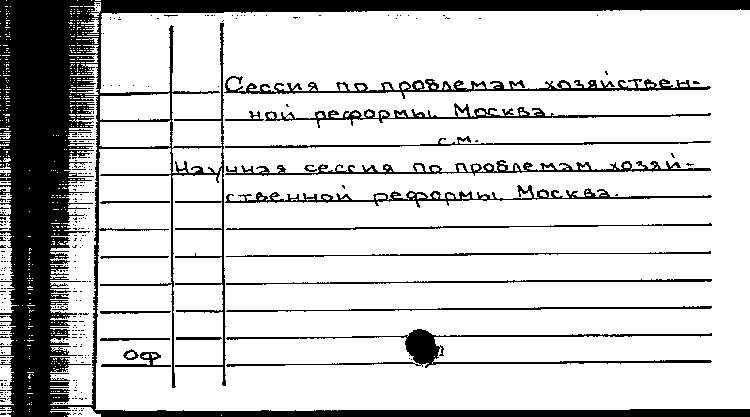 Сессия по проблемам хозяйствен-
ной реформы. Москва.
см.
Научная сессия по проблемам хозяй-
ственной реформы. Москва.
оф